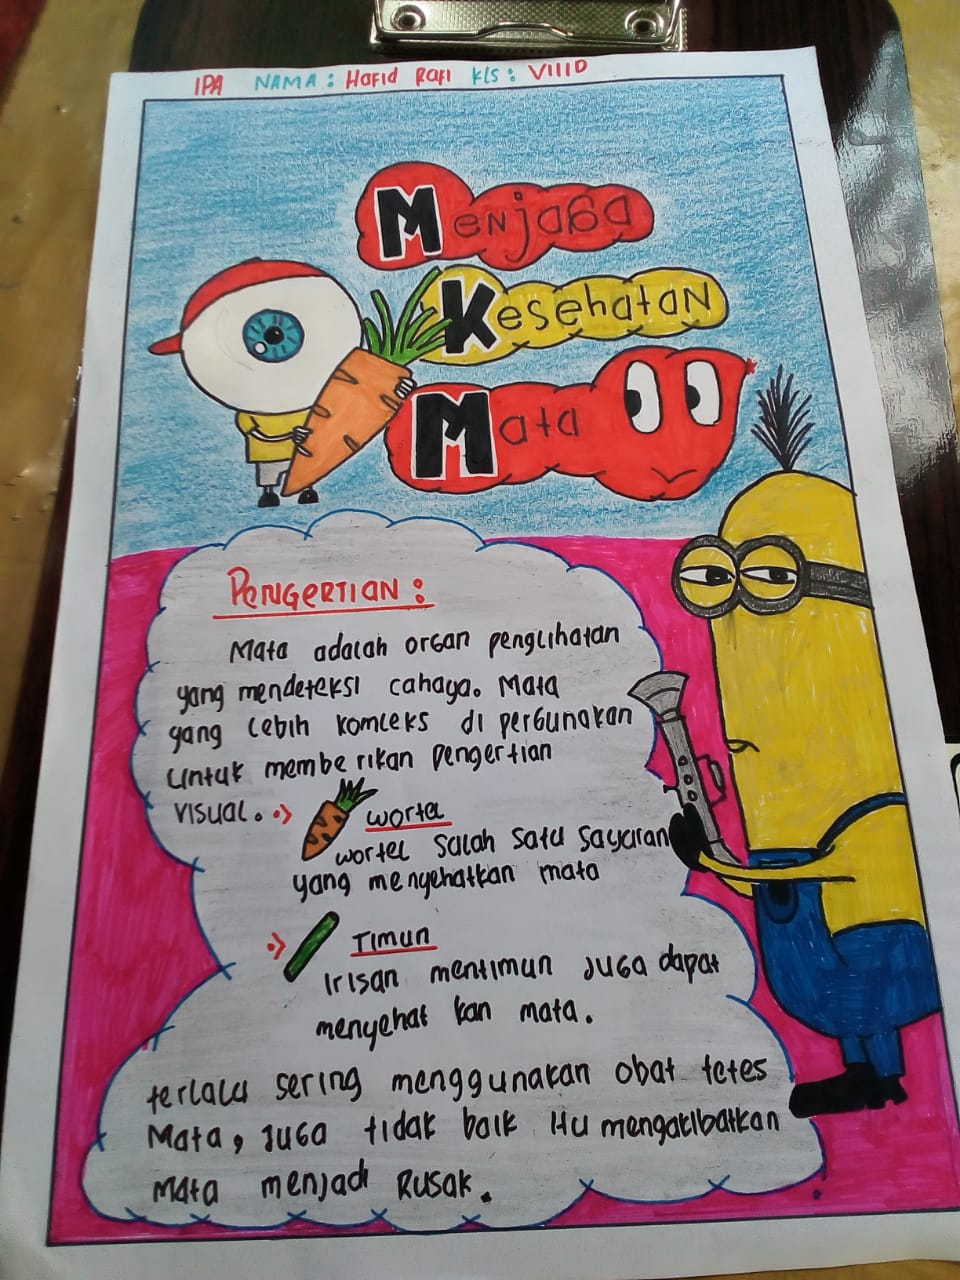 IPA NAMA : Hafid Rafi Kls : VIIID
Menjaga
Kesehatan
Mata
Pengertian :
Mata adalah organ penglihatan
yang mendeteksi cahaya. Mata
yang lebih komleks di pergunakan
untuk membe rikan pengertian
visual.
wortel
wortel salah satu sayuran
yang menyehatkan mata
Timun
Irisan mentimun juga dapat
menyehat kan mata.
terlalu sering menggunakan obat tetes
Mata, juga tidak baik itu mengakibatkan
Mata menjadi Rusak.